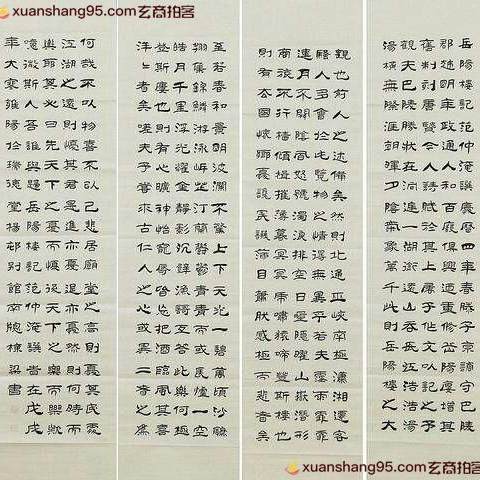 xuanshang95.com玄商拍客
岳陽樓記范仲淹譔慶曆四年春滕子京謫守巴陵
郡越明年政通人和百廢具興乃重修岳陽樓增其
舊制刻唐賢今人詩賦於其上屬予作文以記之予
觀夫巴陵勝狀在洞庭一湖銜遠山吞長江浩浩湯
湯橫無際涯朝暉夕陰氣象萬千此則岳陽樓之大
觀也前人之述備矣然則北通巫峽南極瀟湘遷客
騷人多會於此覽物之情得無異乎若夫霪雨霏霏
連月不開陰風怒號濁浪排空日星隱曜山岳潛形
商旅不行檣傾楫摧薄暮冥冥虎嘯猿啼登斯樓也
則有去國懷鄉憂讒畏譏滿目蕭然感極而悲者矣
至若春和景明波瀾不驚上下天光一碧萬頃沙鷗
翔集錦鱗游泳岸芷汀蘭鬱鬱青青而或長煙一空
皓月千里浮光躍金靜影沉璧漁歌互答此樂何極
登斯樓也則有心曠神怡寵辱偕忘把酒臨風其喜
洋洋者矣嗟夫予嘗求古仁人之心或異二者之為
何哉不以物喜不以己悲居廟堂之高則憂其民處
江湖之遠則憂其君是進亦憂退亦憂然則何時而
樂耶其必曰先天下之憂而憂後天下之樂而樂歟
噫微斯人吾誰與歸岳陽樓記范仲淹譔歲在戊戌
年大寒雒陽於德堂楊邨別館南牕梁書
xuanshang95.com玄商拍客